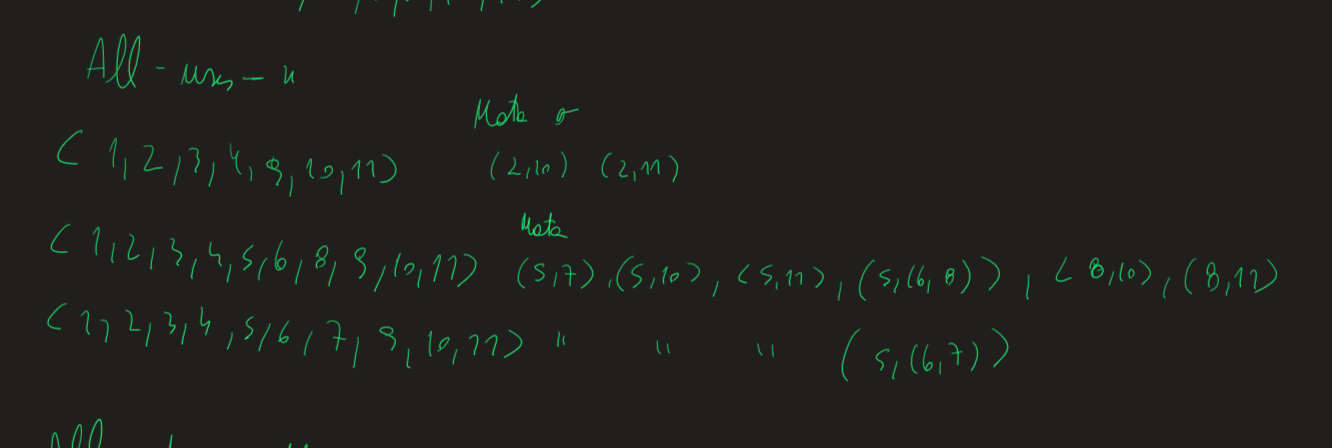 All-uses-u
Mata o
(1,2,3,4,9,10,11) (2,10) (2,11)
Mata
(1,2,3,4,5,6,8,9,10,11) (5,7),(5,10),(5,11),(5,(6,8)),(8,10),(8,11)
(1,2,3,4,5,6,7,9,10,11) " " " (5,(6,7))
All